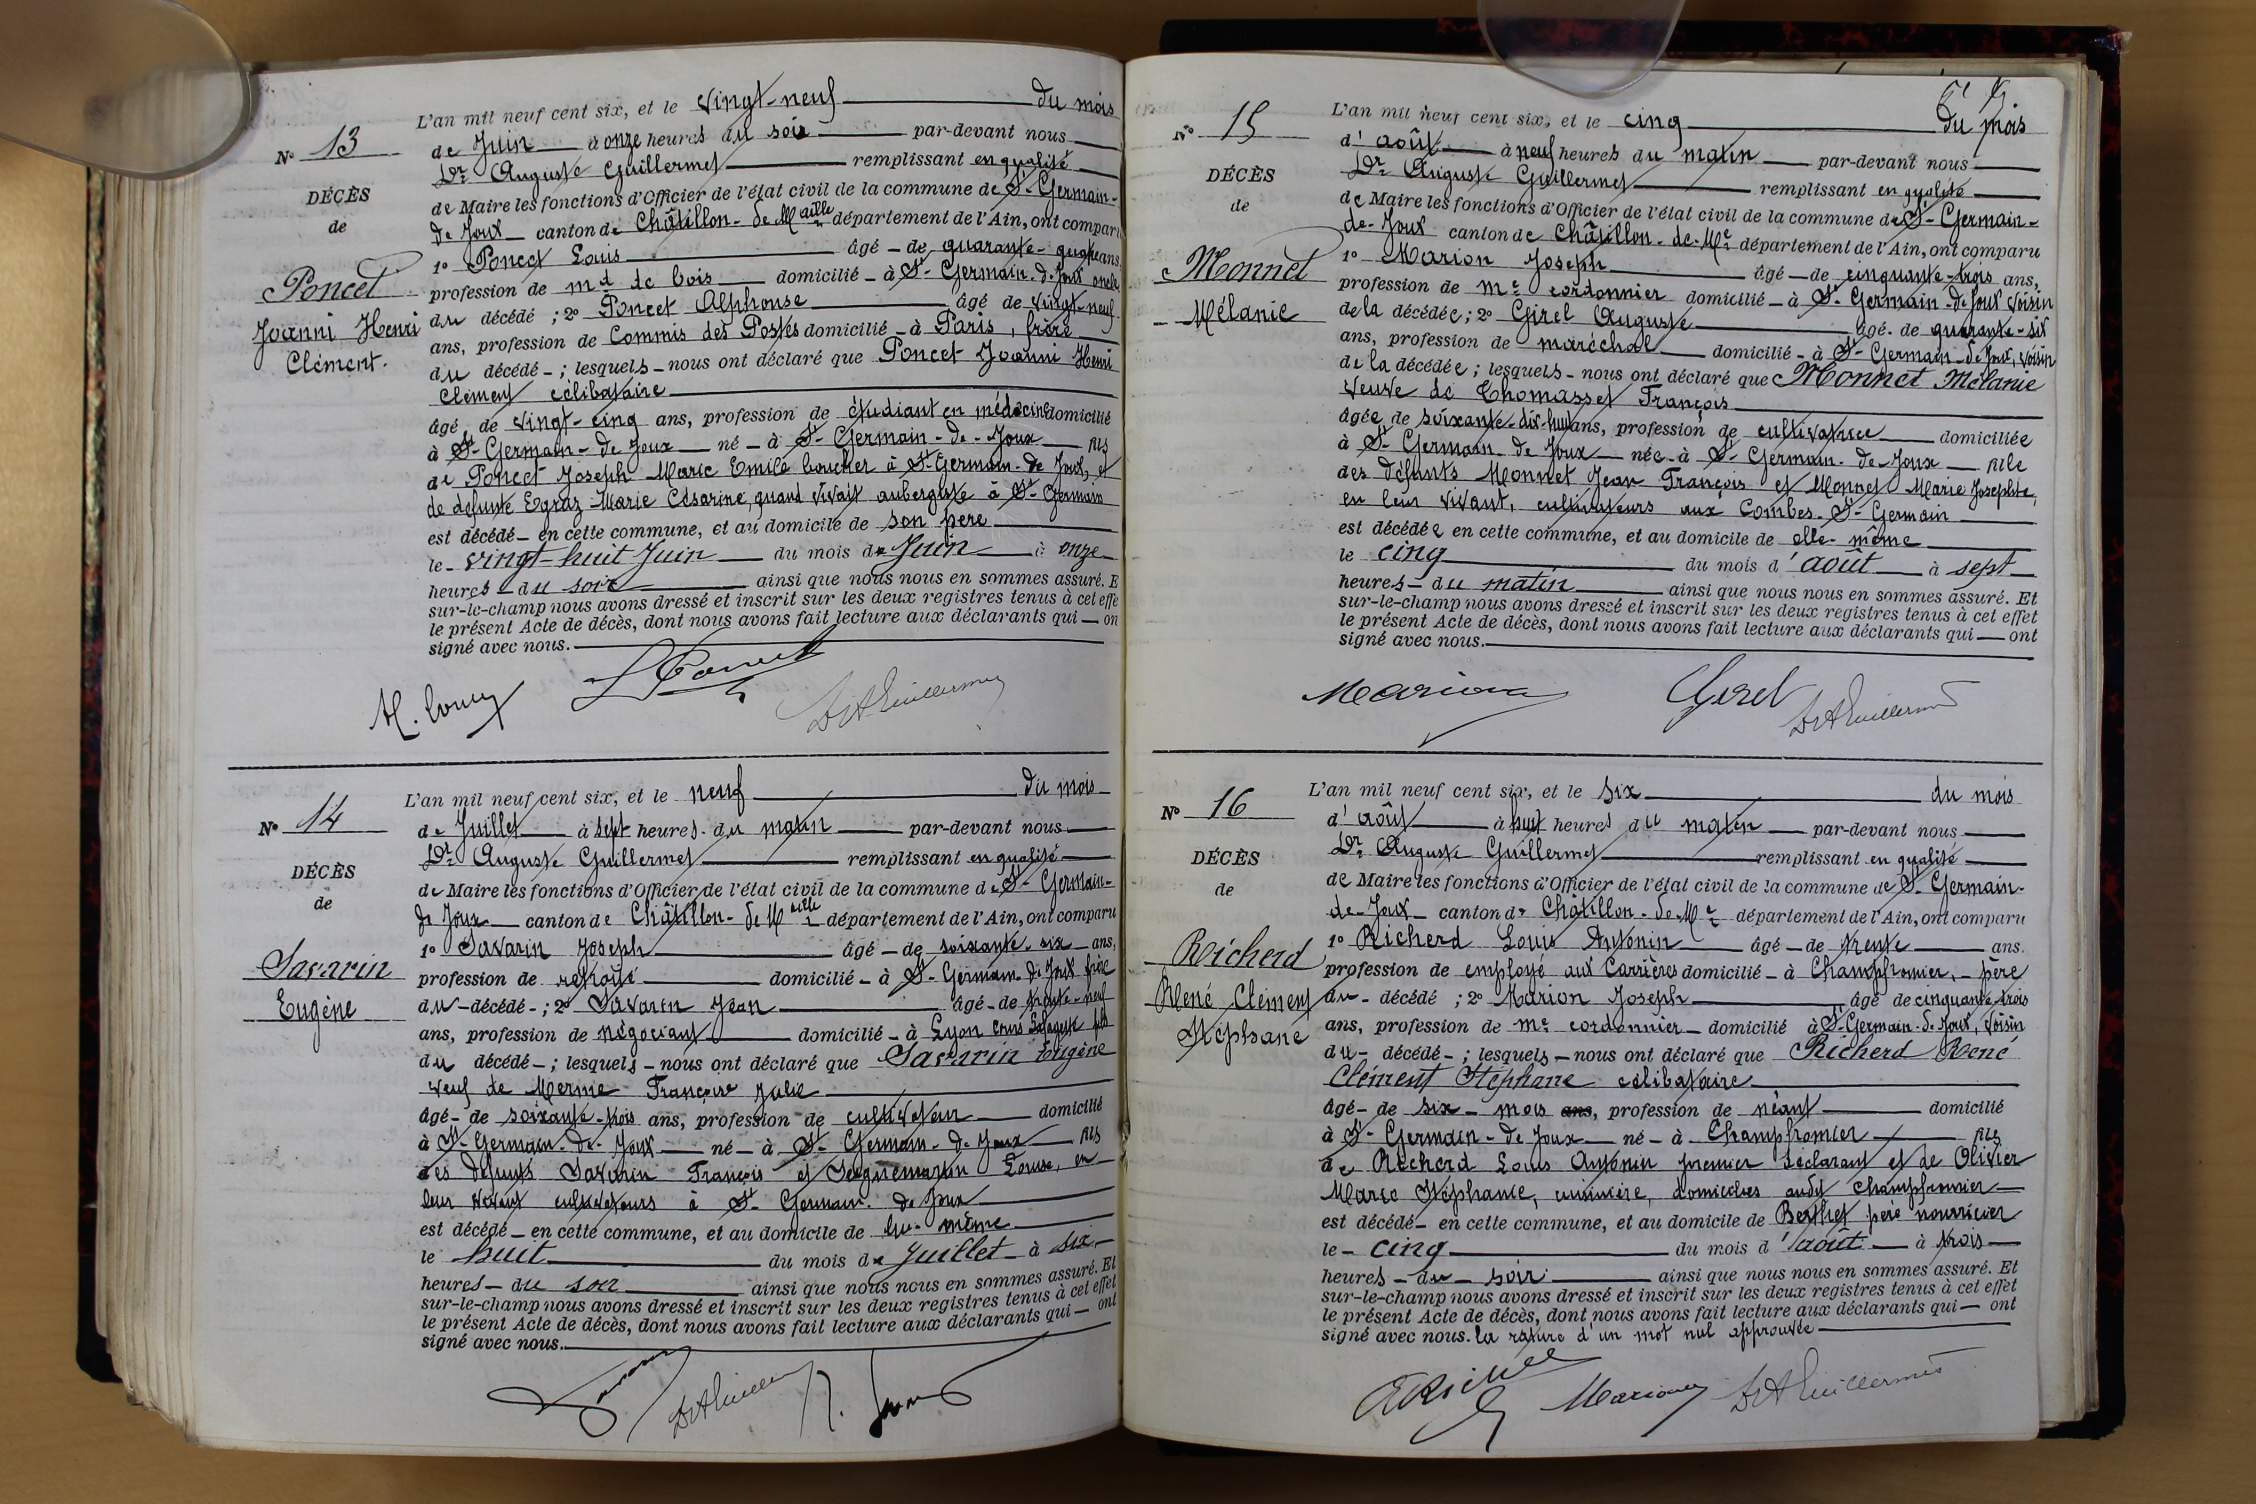 L'an mil neuf cent six, et le vingt-neuf du mois
N° 13
de Juin à onze heures du soir par-devant nous
Dr Auguste Guillermet remplissant en qualité
DÉCÈS
de Maire les fonctions d'Officier de l'état civil de la commune de St-Germain-
de
de Joux canton de Châtillon-de Maille département de l'Ain, ont comparu
1° Poncet Louis âgé de quarante-quatre ans,
Poncet
profession de md de bois domicilié à St-Germain-de Joux oncle
du décédé ; 2° Poncet Alphonse âgé de vingt-neuf
Joanni Henri
ans, profession de Commis des Postes domicilié à Paris, frère
Clément.
du décédé ; lesquels nous ont déclaré que Poncet Joanni Henri
Clément célibataire
âgé de vingt-cinq ans, profession de étudiant en médecine domicilié
à St-Germain-de Joux né à St-Germain-de-Joux fils
de Poncet Joseph Marie Emile boucher à St-Germain-de Joux, et
de défunte Egraz Marie Césarine, quand vivait aubergiste à St-Germain
est décédé en cette commune, et au domicile de son père
le vingt-huit Juin du mois de Juin à onze
heures du soir ainsi que nous nous en sommes assuré. E
sur-le-champ nous avons dressé et inscrit sur les deux registres tenus à cet effe
le présent Acte de décès, dont nous avons fait lecture aux déclarants qui on
signé avec nous.
L Poncet
DrAGuillermet
L'an mil neuf cent six, et le neuf du mois
N° 14
de Juillet à sept heures du matin par-devant nous
Dr Auguste Guillermet remplissant en qualité
DÉCÈS
de Maire les fonctions d'Officier de l'état civil de la commune de St-Germain-
de
de Joux canton de Châtillon-de Maille département de l'Ain, ont comparu
1° Savarin Joseph âgé de soixante-six ans,
Savarin
profession de retraité domicilié à St-Germain-de Joux frère
Eugène
du décédé ; 2° Savarin Jean âgé de trente-neuf
ans, profession de négociant domicilié à Lyon cours Lafayette fils
du décédé ; lesquels nous ont déclaré que Savarin Eugène
veuf de Merme Françoise Julie
âgé de soixante-trois ans, profession de cultivateur domicilié
à St-Germain-de-Joux né à St-Germain-de Joux fils
des défunts Savarin François et Seignemartin Louise, en
leur vivant cultivateurs à St-Germain-de Joux
est décédé en cette commune, et au domicile de lui-même
le huit du mois de Juillet à six
heures du soir ainsi que nous nous en sommes assuré. Et
sur-le-champ nous avons dressé et inscrit sur les deux registres tenus à cet effet
le présent Acte de décès, dont nous avons fait lecture aux déclarants qui ont
signé avec nous.
DrAGuillermet
L'an mil neuf cent six, et le cinq du mois
N° 15
d'août à neuf heures du matin par-devant nous
Dr Auguste Guillermet remplissant en qualité
DÉCÈS
de Maire les fonctions d'Officier de l'état civil de la commune de St-Germain-
de
de-Joux canton de Châtillon-de-Me département de l'Ain, ont comparu
1° Marion Joseph âgé de cinquante-trois ans,
Monnet
profession de me cordonnier domicilié à St-Germain-de Joux voisin
Mélanie
de la décédée ; 2° Girel Auguste âgé de quarante-six
ans, profession de maréchal domicilié à St-Germain-de Joux, voisin
de la décédée ; lesquels nous ont déclaré que Monnet Mélanie
veuve de Thomasset François
âgée de soixante-dix-huit ans, profession de cultivatrice domiciliée
à St-Germain-de Joux née à St-Germain-de-Joux fille
des défunts Monnet Jean François et Monnet Marie Josephte,
en leur vivant, cultivateurs aux Combes St-Germain
est décédée en cette commune, et au domicile de elle-même
le cinq du mois d'août à sept
heures du matin ainsi que nous nous en sommes assuré. Et
sur-le-champ nous avons dressé et inscrit sur les deux registres tenus à cet effet
le présent Acte de décès, dont nous avons fait lecture aux déclarants qui ont
signé avec nous.
Marion Girel DrAGuillermet
L'an mil neuf cent six, et le six du mois
N° 16
d'août à huit heures du matin par-devant nous
Dr Auguste Guillermet remplissant en qualité
DÉCÈS
de Maire les fonctions d'Officier de l'état civil de la commune de St-Germain-
de
de-Joux canton de Châtillon-de-Me département de l'Ain, ont comparu
1° Richerd Louis Antonin âgé de trente ans.
Richerd
profession de employé aux Carrières domicilié à Champfromier, père
René Clément
du décédé ; 2° Marion Joseph âgé de cinquante trois
Stéphane
ans, profession de me cordonnier domicilié à St-Germain-de Joux, voisin
du décédé ; lesquels nous ont déclaré que Richerd René
Clément Stéphane célibataire
âgé de six mois ans, profession de néant domicilié
à St-Germain-de Joux né à Champfromier fils
de Richerd Louis Antonin premier déclarant et de Olivier
Marie Stéphanie, domiciliés audit Champfromier
est décédé en cette commune, et au domicile de Berthet père nourricier
le cinq du mois d'août à trois
heures du soir ainsi que nous nous en sommes assuré. Et
sur-le-champ nous avons dressé et inscrit sur les deux registres tenus à cet effet
le présent Acte de décès, dont nous avons fait lecture aux déclarants qui ont
signé avec nous. la rature d'un mot nul approuvée
Marion DrAGuillermet